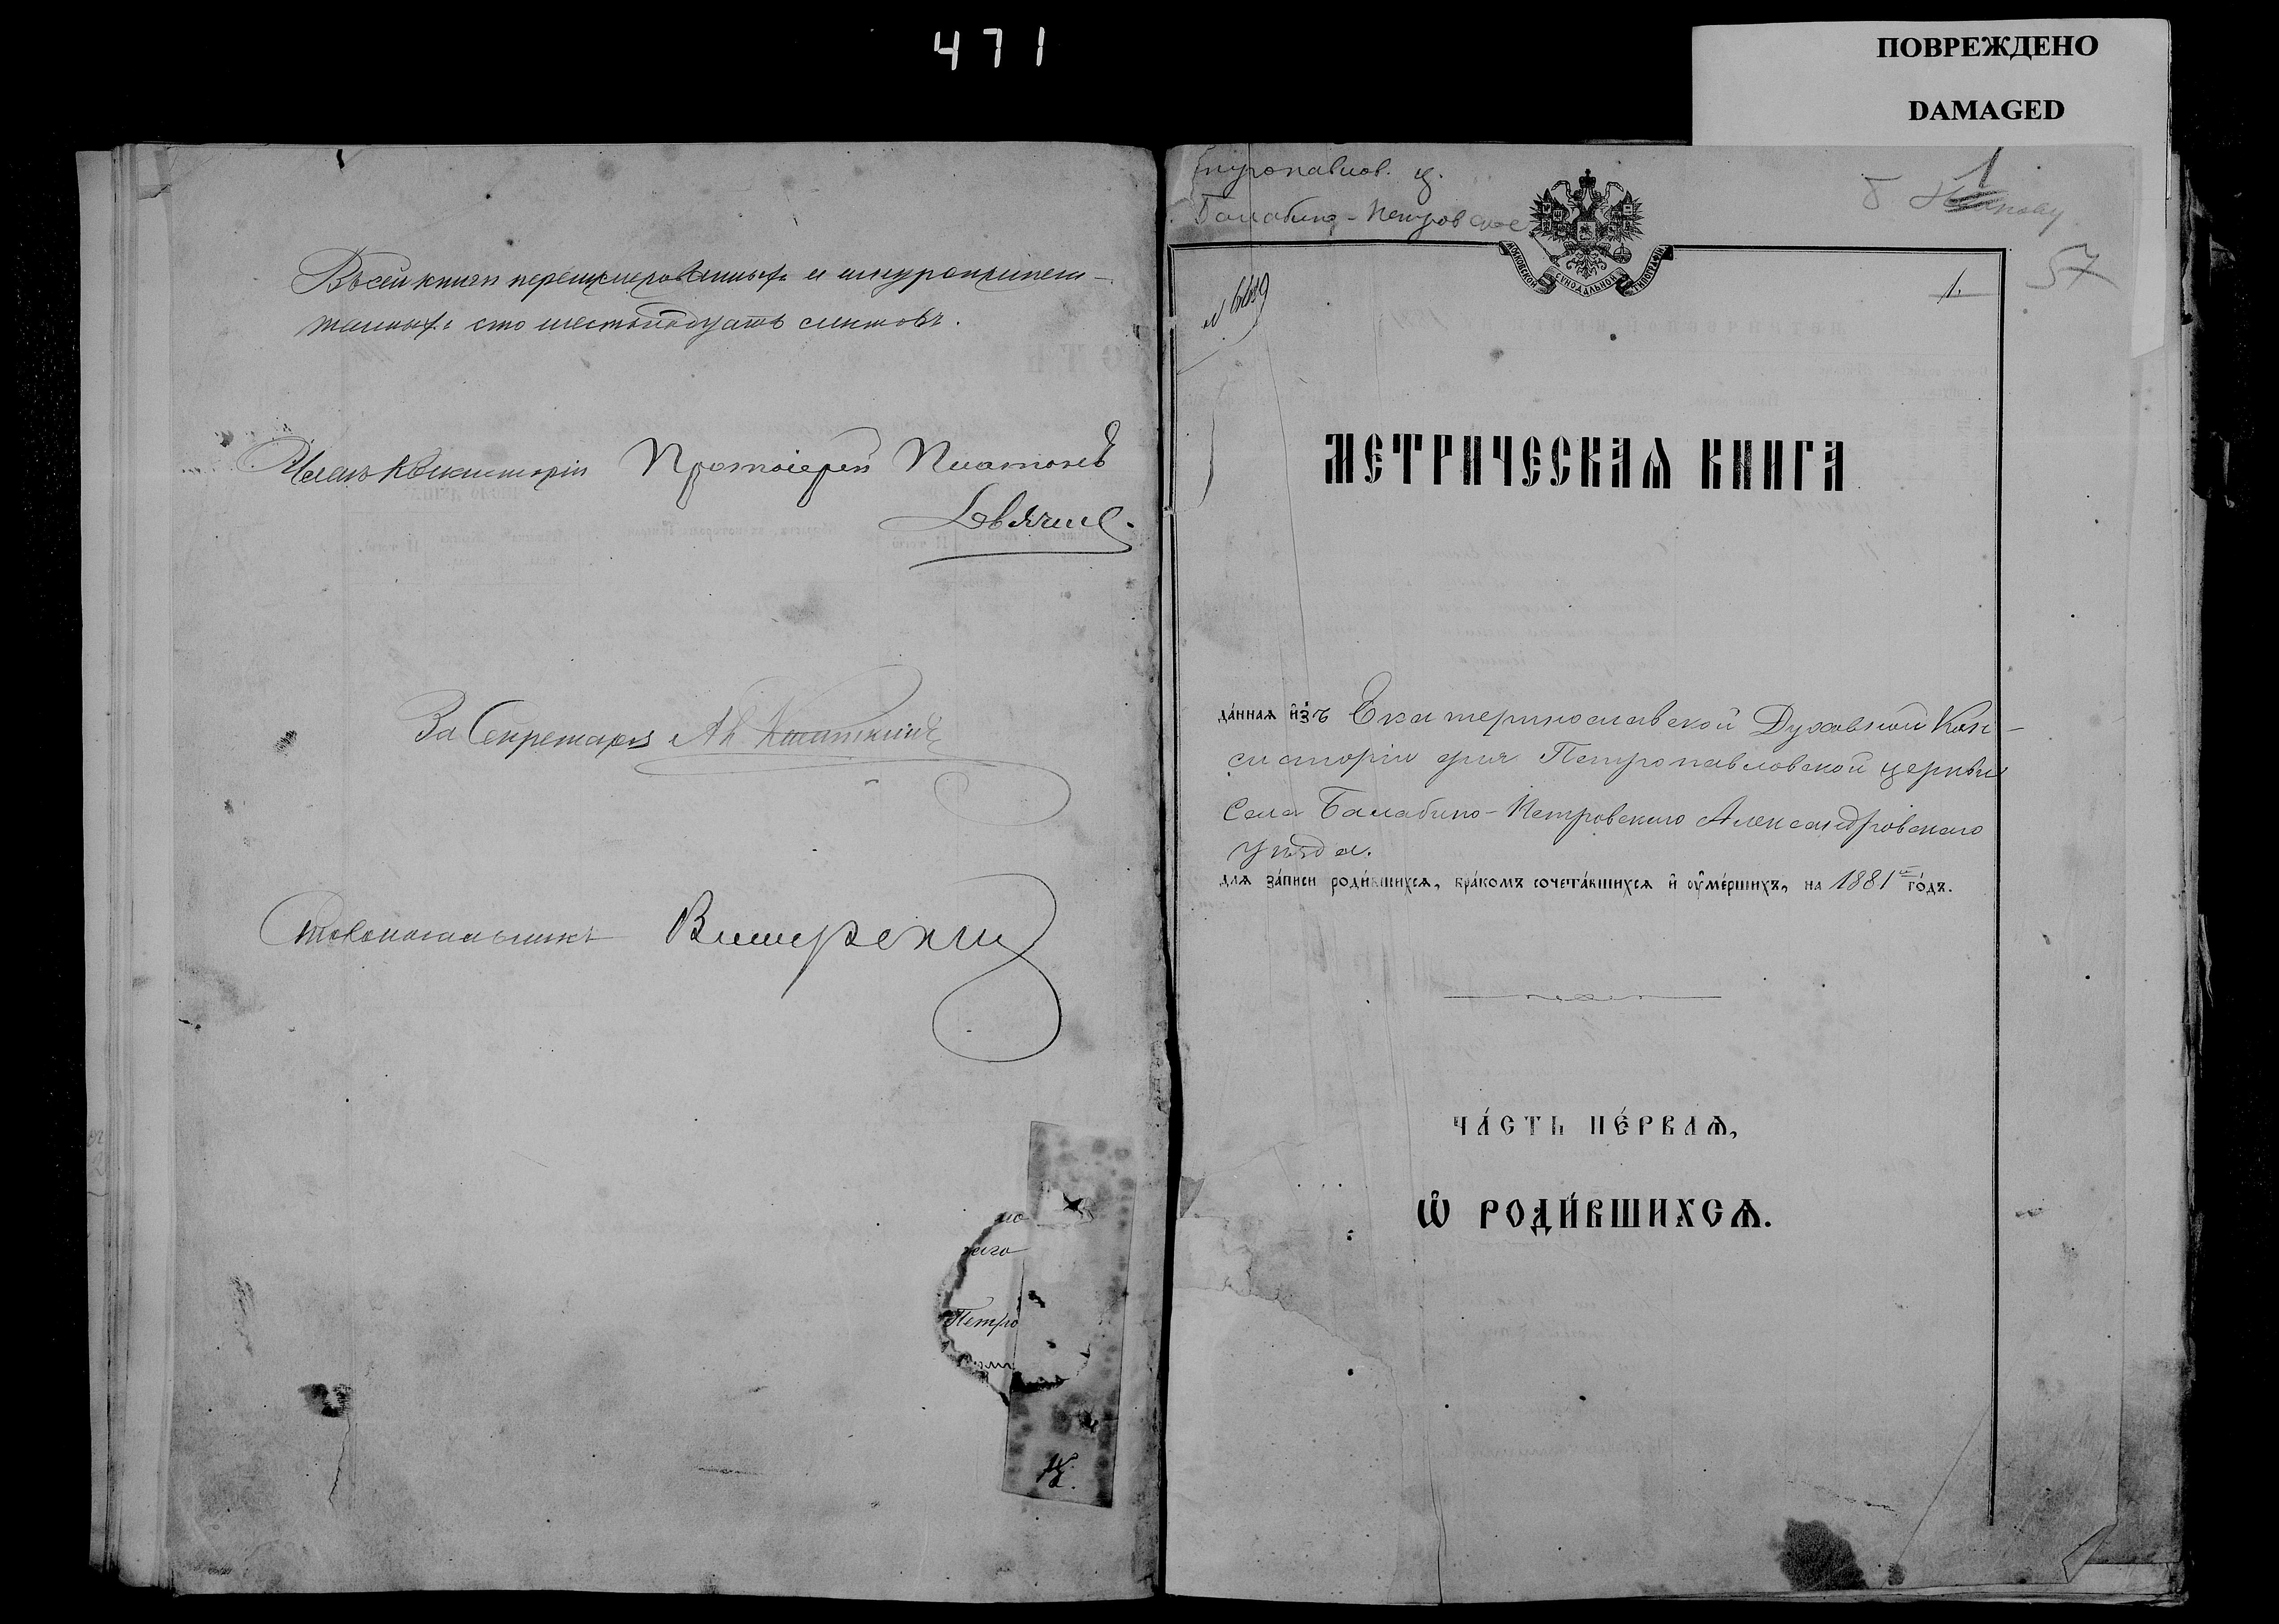 471
ПОВРЕЖДЕНО
DAMAGED
Въ сей книгѣ перенумерованныхъ и шнуроприпеча-
танныхъ сто шестьнадцать листовъ.
Членъ Консисторіи Протоіерей Платонъ
За Секретаря
Столоначальникъ
Петро
Петропавлов. ц.
Балабино-Петровское
57
1
МОСКОВСКОЙ СѴНОДАЛЬНОЙ ТИПОГРАФІИ
1.
МЕТРИЧЕСКАѦ КНИГА
да́ннаѧ и҆зъ Екатеринославской Духовной Кон-
систоріи для Петропавловской церкви
села Балабино-Петровскаго Александровскаго
уѣзда.
длѧ за́писи роди́вшихсѧ, бра́комъ сочета́вшихсѧ и҆ ᲂу҆ме́ршихъ, на 1881й го́дъ.
ЧА́СТЬ ПЕ́РВАѦ,
Ѡ҆ РОДИ́ВШИХСѦ.